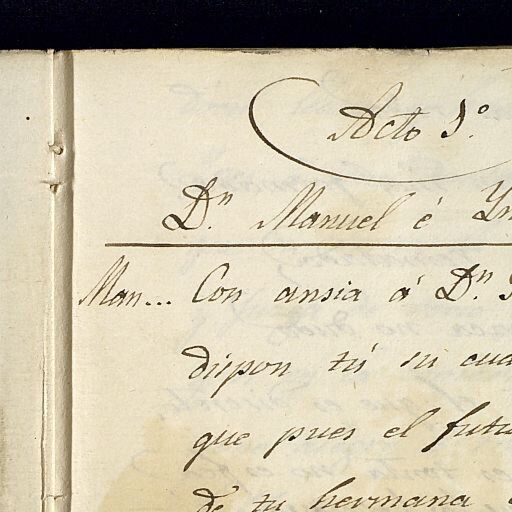 Acto 1.º
D.ⁿ Manuel é
Man... Con ansia á D.ⁿ
dispon tú su
que pues el
de tu hermana